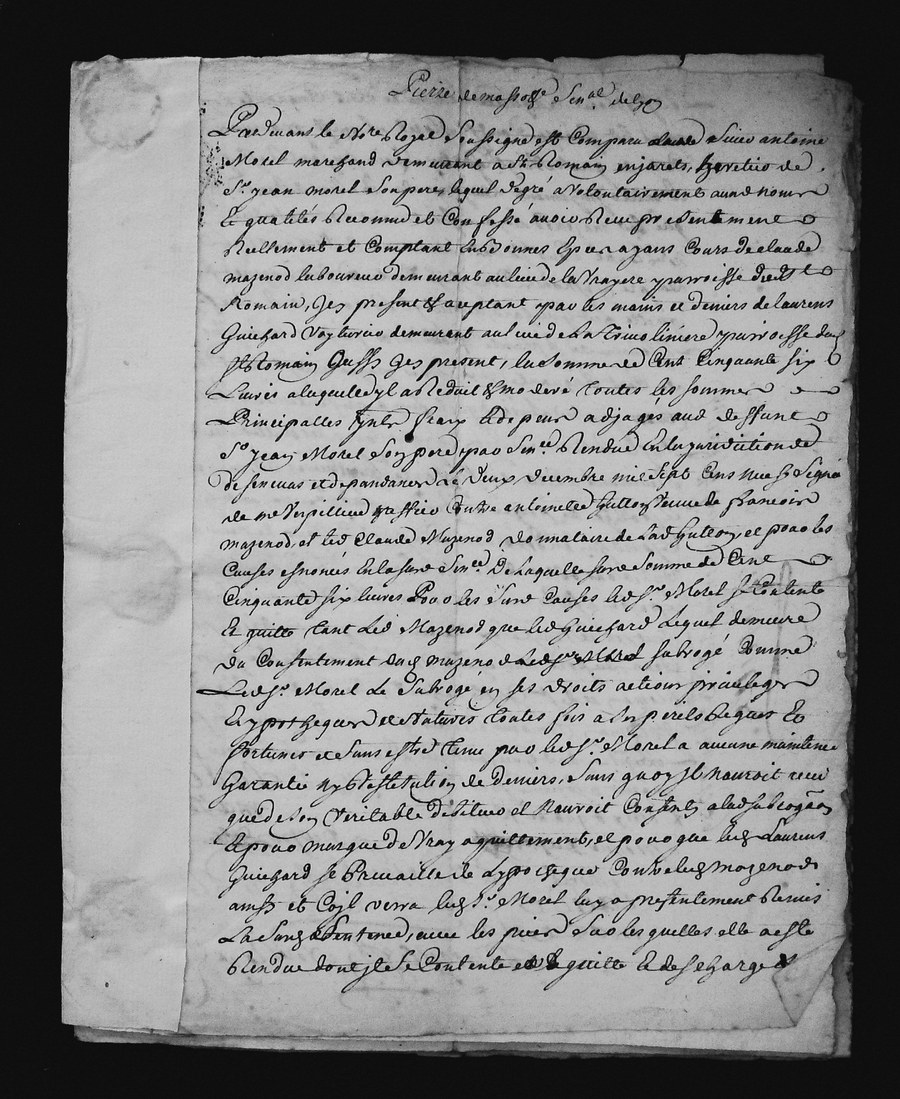 Pierre de masso &c Sen.al de Lyon
Pardevant le No.re Royal Soussigne est Comparu Sieur antoine
Morel marchand demeurant a St Romain en jarets, heretier de
S.r jean morel son pere, lequel de gré a volontairement aux d noms
Et qualités Reconnu et Confessé avoir Receu presentement
Reellement et Comptant En bonnes Especes ayans Cours de claude
mazenod laboureur demeurant au lieu de la parroisse dud St
Romain, Jcy present & aceptant par les mains et deniers de laurens
Guichard Voyturier demeurant au lieu de parroisse dud
St Romain aussy Jcy present, la somme de Cent Cinquante six
Livres a laquelle yl a Reduit & moderé Toutes les sommes
Principalles fraix adjugés aud deffunt
S.r jean Morel son pere par Sen.ce Rendue En la juridiction de
de senevas et dependances Le deux Decembre mil Sept Cens neuf Signé
de m.e Verpilleux greffier Contre antoinette Veuve de francois
mazenod, et led Claude Mazenod donnataire de Lad et pour les
Causes enoncées En lasusd Sen.ce De laquelle susd Somme de Cent
Cinquante six livres Pour les susd Causes led S.r Morel se Contente
Et quitte Tant Led Mazenod que led Guichard Lequel demeure
Du Consentement dud mazenod subrogé Comme
Led S.r Morel Le Subroge en ses droits actions privileges
Et ypotheques Toutes fois a ses perils Risques Et
fortunes et sans estre Tenu par led S.r Morel a aucune maintenue
Garantie ny Restitution de deniers, Sans quoy jl nauroit receu
que de son Veritable debiteur et Nauroit Consenty a lad subroga.on
Et pour marque de Vray aquittement, et pour que led Laurens
Guichard se Prevaille de Lypotheque Contre led mazenod
ainsy et Co.e jl verra led S.r Morel luy a presentement Remis
La Susd Sentence, avec les pieces Sur les quelles elle a esté
Rendue dont jl se Contente et le quitte Et descharge